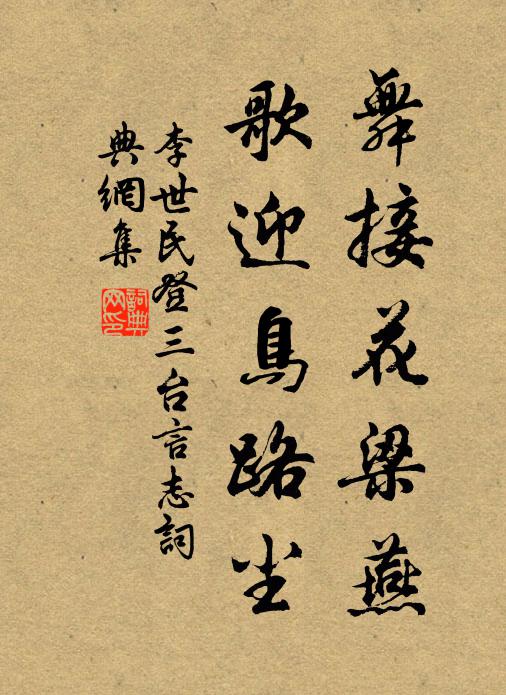 舞接花梁燕
歌迎鳥路尘
李世民登三台言志詞
典網集
詞典
网印